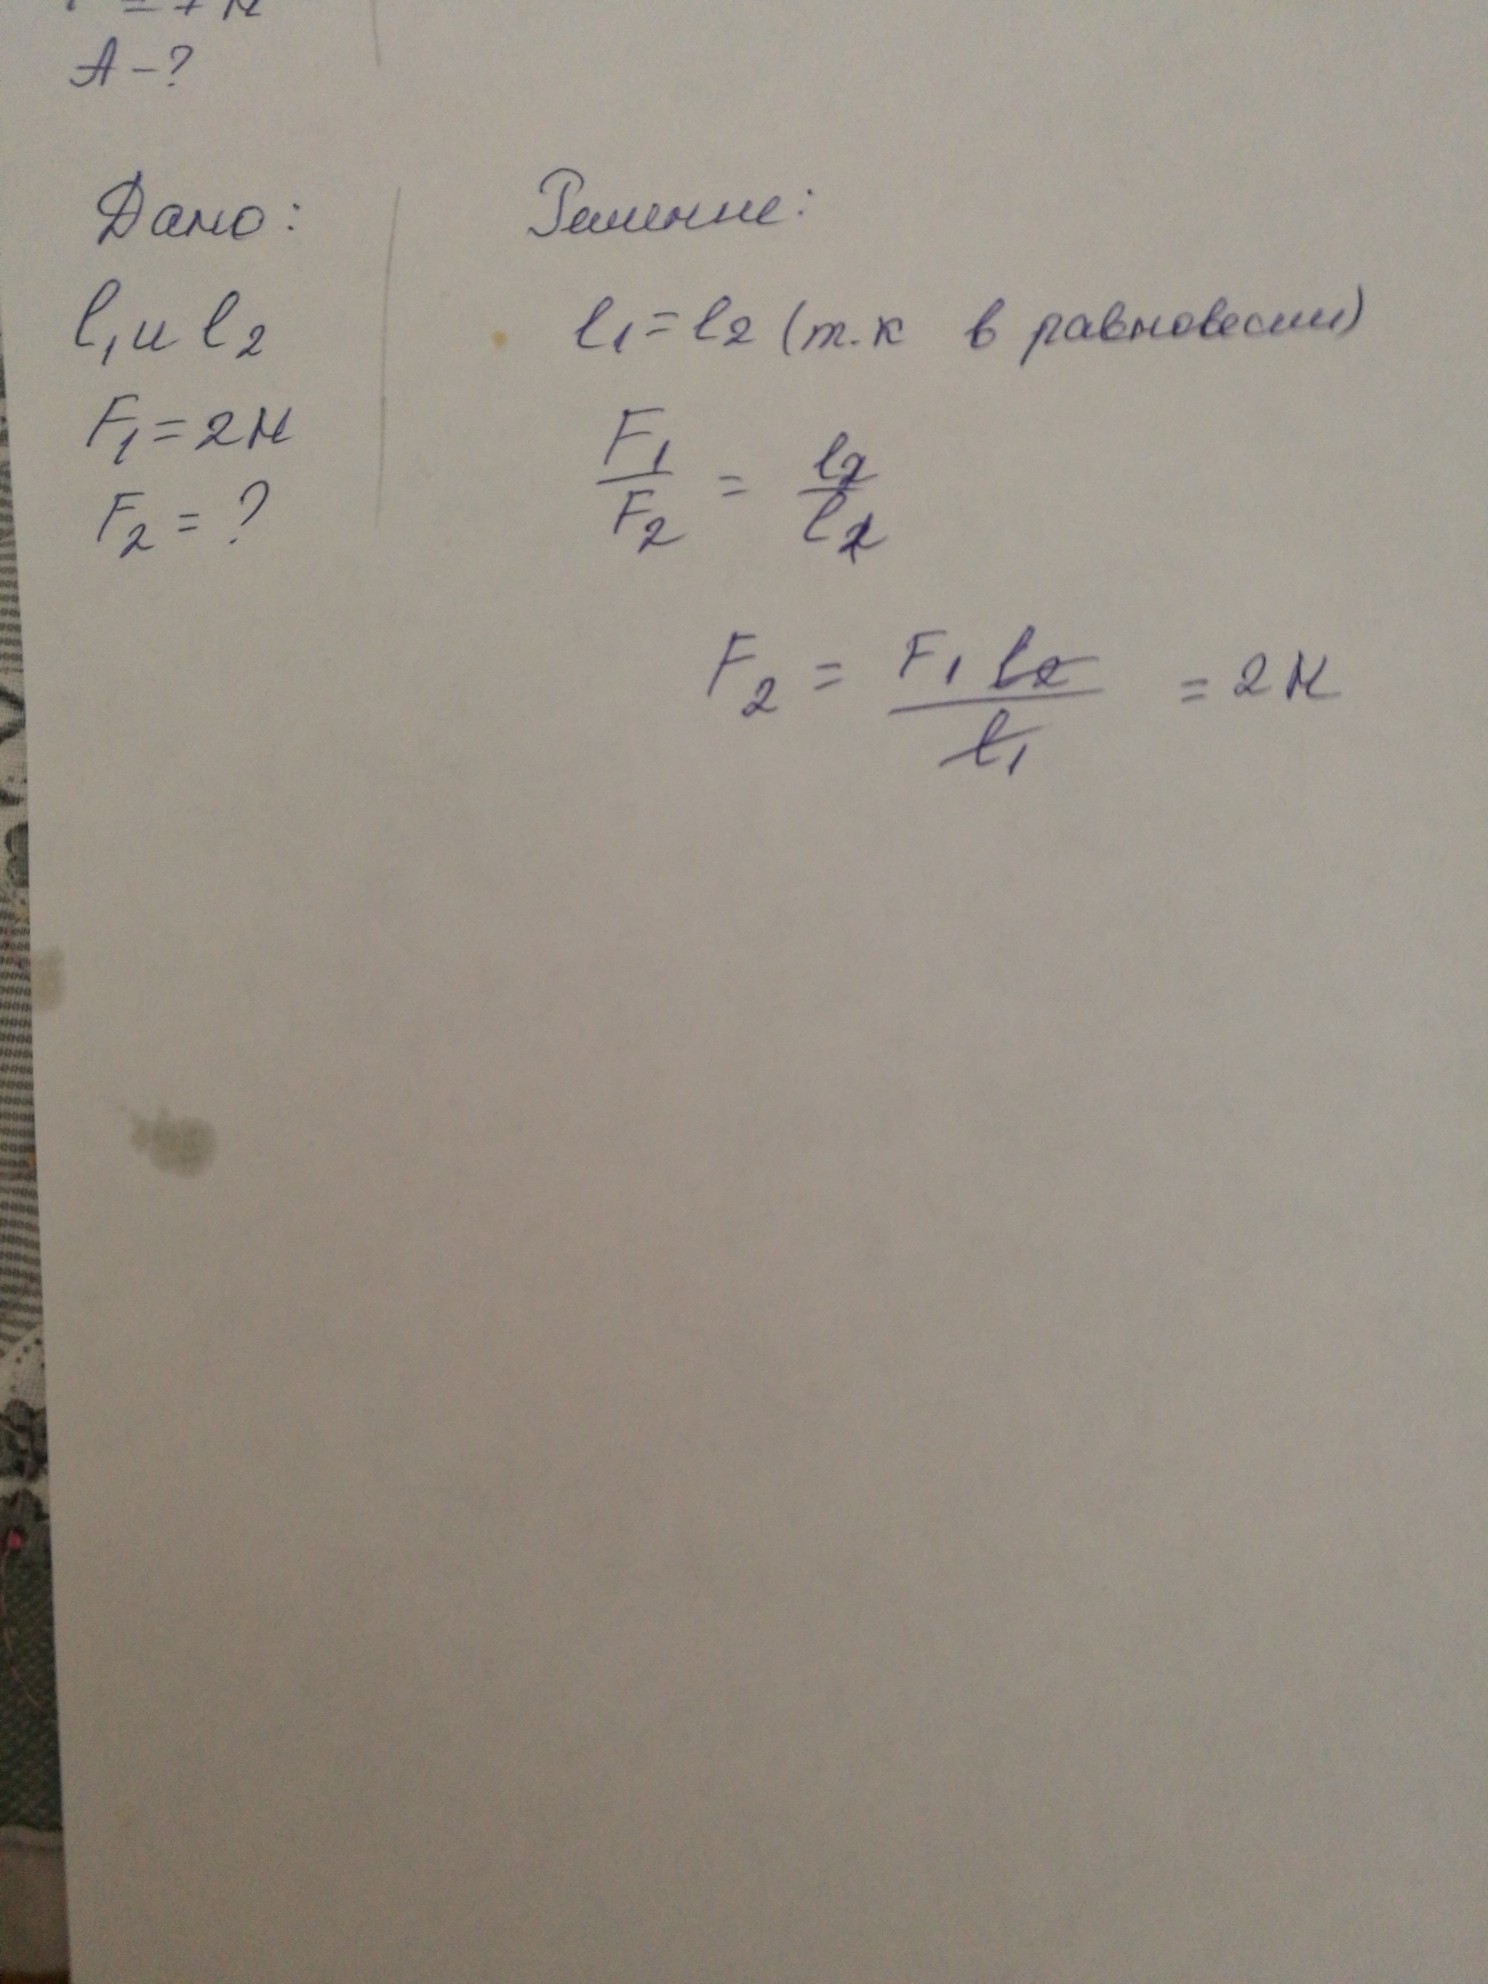 = 7 Н
A - ?
Дано:
l₁ и l₂
F₁ = 2Н
F₂ = ?
Решение:
l₁ = l₂ (т.к в равновесии)
F₁/F₂ = l₂/l₁
F₂ = F₁ l₂/l₁ = 2Н